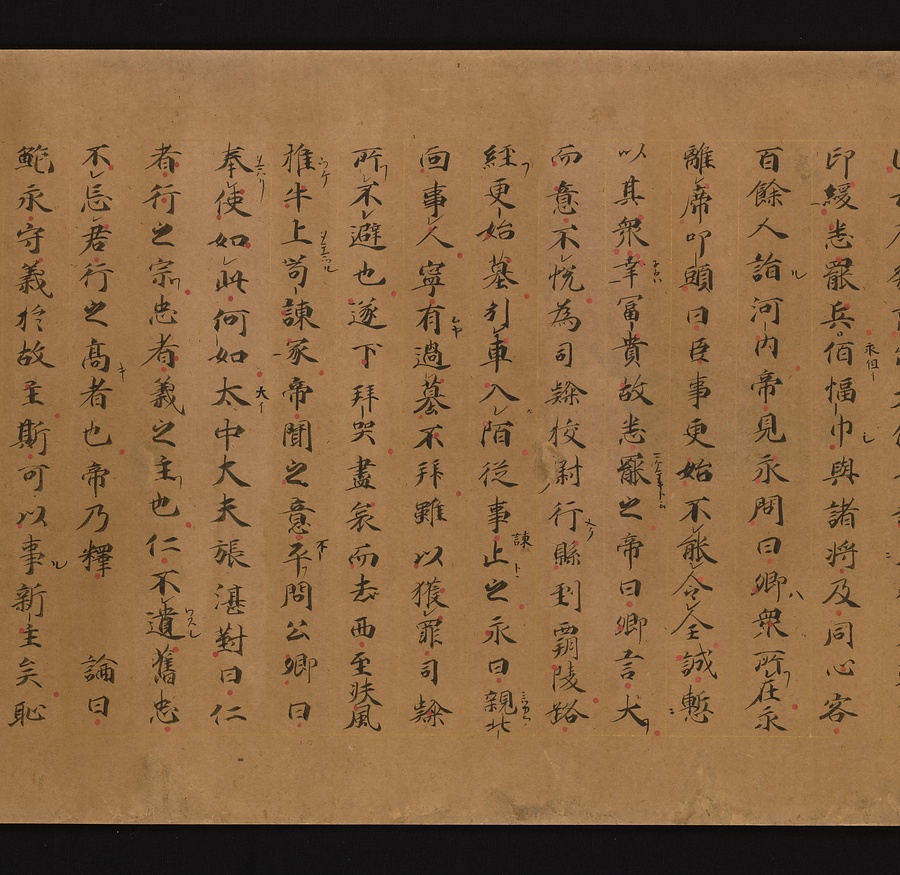 印綬悉罷兵佰幅巾與諸將及同心客
百餘人詣河内帝見永問曰卿衆所在永
離席叩頭曰臣事更始不能令全誠慙
以其衆幸冨貴故悉罷之帝曰卿言大
而意不悅為司隸校尉行縣到覇陵路
經更始墓引車入陌從事止之永曰親北
面事人寧有過墓不拜雖以獲罪司隸
所不避也遂下拜哭盡哀而去西至扶風
推牛上苟諫冢帝聞之意平問公卿曰
奉使如此何如太中大夫張湛對曰仁
者行之宗忠者義之主也仁不遺舊忠
不忘君行之髙者也帝乃釋 論曰
鮑永守義於故主斯可以事新主矣恥